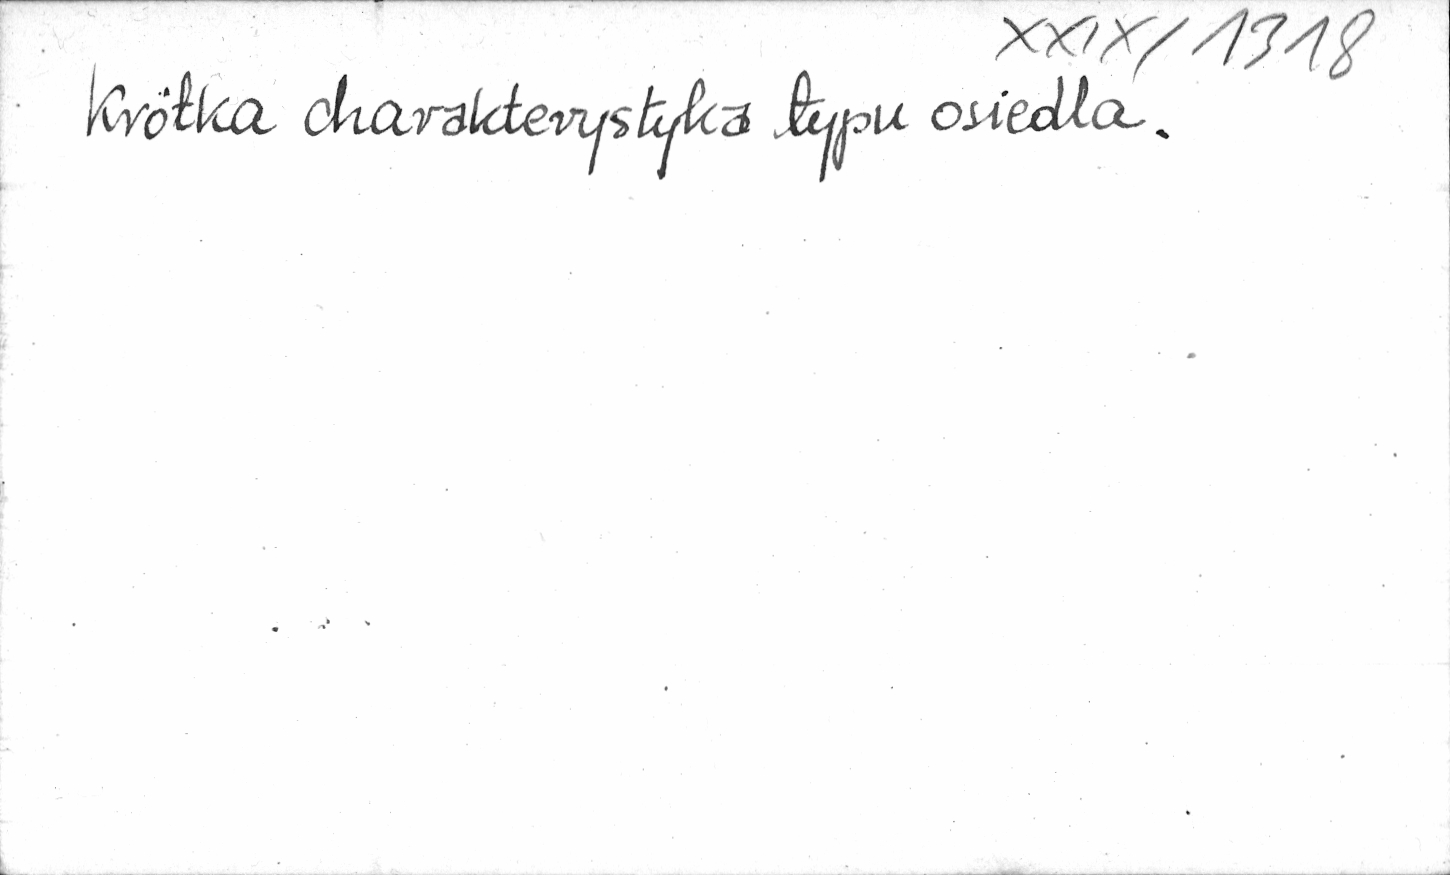 XXIX/1318
Krótka charakterystyka typu osiedla.